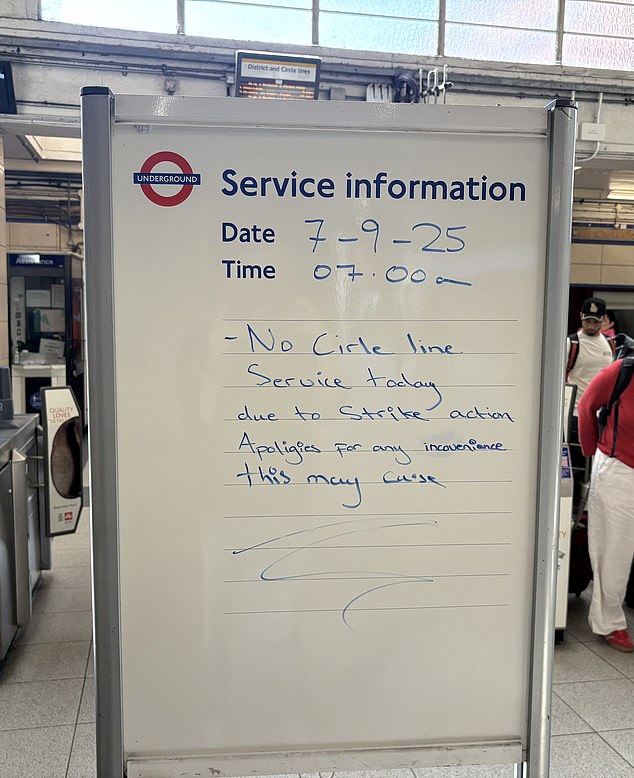 District and Circle lines
Assistance
UNDERGROUND
Service information
Date 7-9-25
Time 07.00a
- No Cirle line
Service today
due to Strike action
Apoligies for any incovenience
this may cause
QUALITY
LOVES